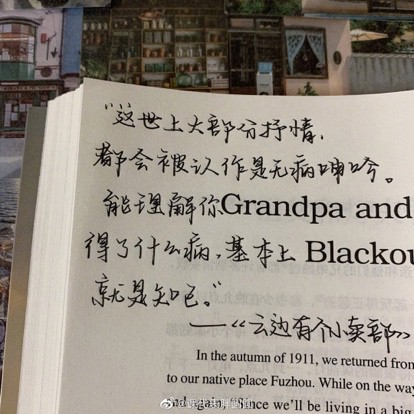 “这世上大部分抒情，
都会被认作是无病呻吟。
能理解你Grandpa and
得了什么病，基本上 Blackou
就是知己。”
——《云边有个小卖部》
In the autumn of 1911, we returned from
to our native place Fuzhou. While on the way
and again, “Since we’ll be living in a big